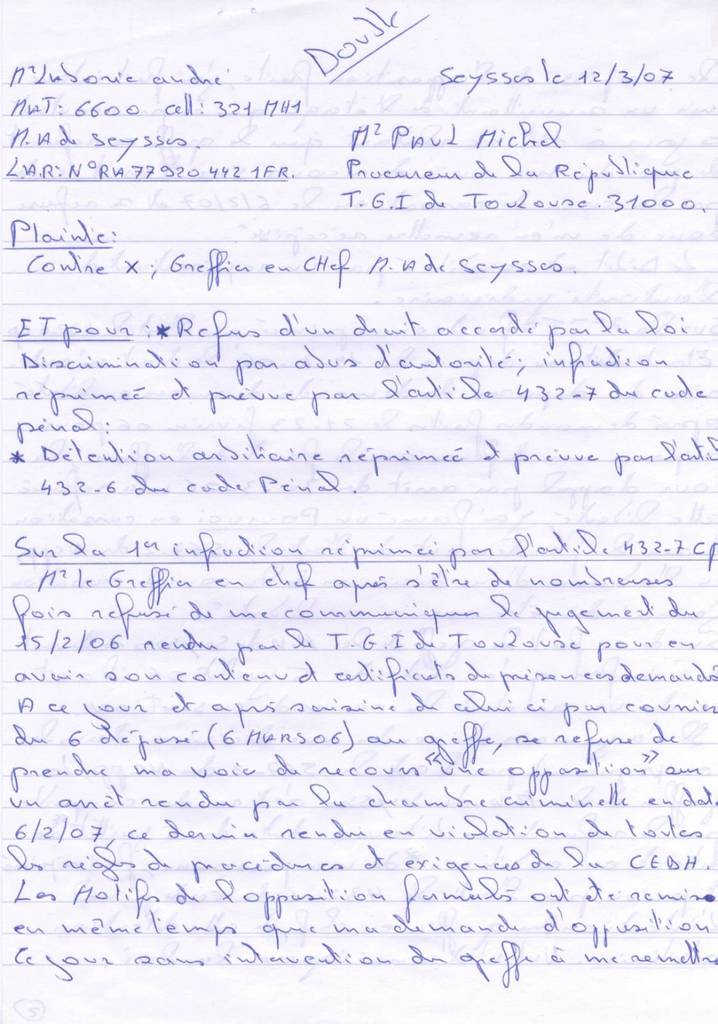 Double
Mr Laborie andré
Seysses le 12/3/07
MAT: 6600 cell: 321 MH1
M.A de Seysses.
Mr PAUL Michel
L.A.R: N° RA 77920 442 1FR.
Procureur de la République
T.G.I de Toulouse. 31000.
Plainte:
Contre X; Greffier en CHef M.A de Seysses.
ET pour: * Refus d'un droit accordé par la loi
Discrimination par abus d'autorité; infraction
réprimée et prévue par l'article 432-7 du code
pénal:
* Détention arbitraire réprimée et prévue par l'arti
432-6 du code Pénal.
Sur la 1er infraction réprimée par l'article 432-7 CP
Mr le Greffier en chef après s'être de nombreuses
fois refusé de me communiquer le jugement du
15/2/06 rendu par le T.G.I de Toulouse pour en
avoir son contenu et certificats de présences demandés
A ce jour et après saisine de celui ci par courrier
du 6 déposé (6 MARS 06) au greffe, se refuse de
prendre ma voie de recours "une opposition" sur
un arrêt rendu par la chambre criminelle en date
6/2/07 ce dernier rendu en violation de toutes
les règles de procédures et exigences de la CEDH.
Les Motifs de l'opposition formulés ont été remis
en même temps que ma demande d'opposition
Ce jour sans intervention du greffe à me remettre